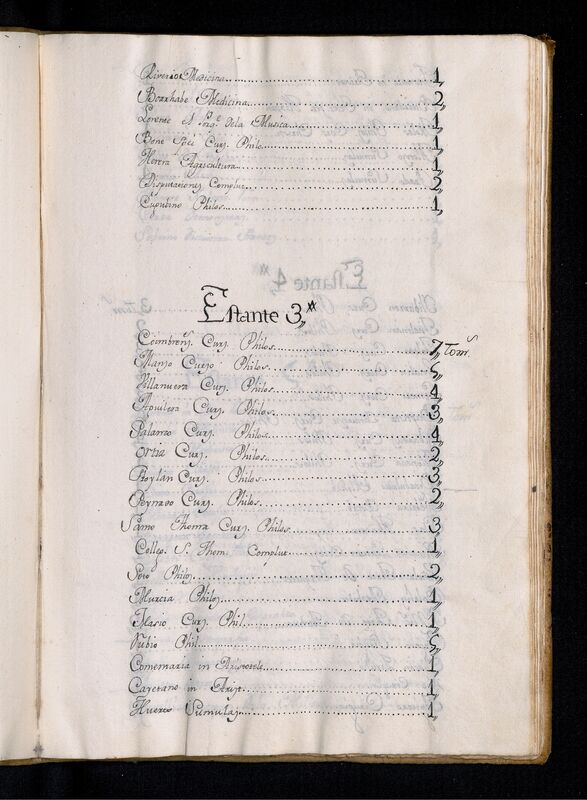 Riverios Medicina 1,,
Borrhabe Medicina 2,,
Lorente el Porq.e dela Musica 1,,
Bone Spei Curs. Philo. 1,,
Herera Agricultura 1,,
Disputationes Complut. 2,,
Cuputino Philos. 1,,
Estante 3,,
Coimbrens. Curs. Philos. 7,, Tom.s
Manso Curso Philos. 5,,
Villanueva Curs. Philos. 4,,
Aguilera Curs. Philos. 3,,
Palanco Curs. Philos. 4,,
Ortiz Curs. Philos. 2,,
Froylan Curs. Philos. 3,,
Reynoso Curs. Philos. 2,,
Santo Thoma Curs. Philos. 3
Colleg. S. Thom. Complut. 1,,
Soto Philos. 2,,
Murcia Philos. 1,,
Masio Curs. Phil. 1,,
Rubio Phil. 5,,
Comentaria in Aristotels. 1
Cayetano in Arist. 1,,
Sumulas 1,,